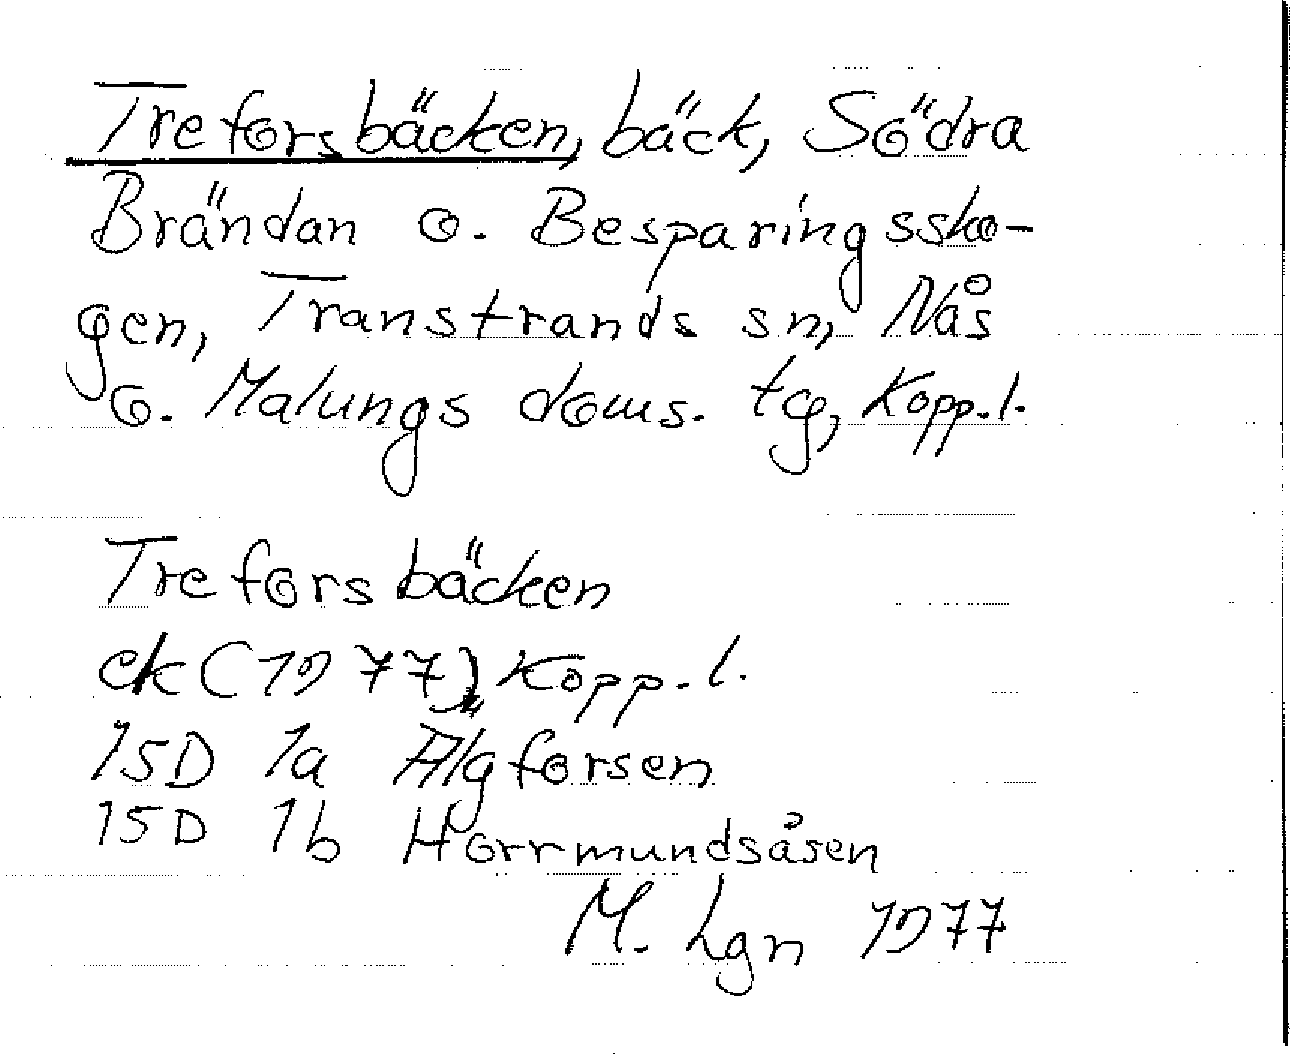 Treforsbäcken, bäck, Södra
Brändan o. Besparingssko-
gen, Transtrands sn, Nås
o. Malungs doms. tg, Kopp.l.
Treforsbäcken
ek (1977) Kopp.l.
15D 1a Älgforsen
15D 1b Horrmundsåsen
M. Lgn 1977